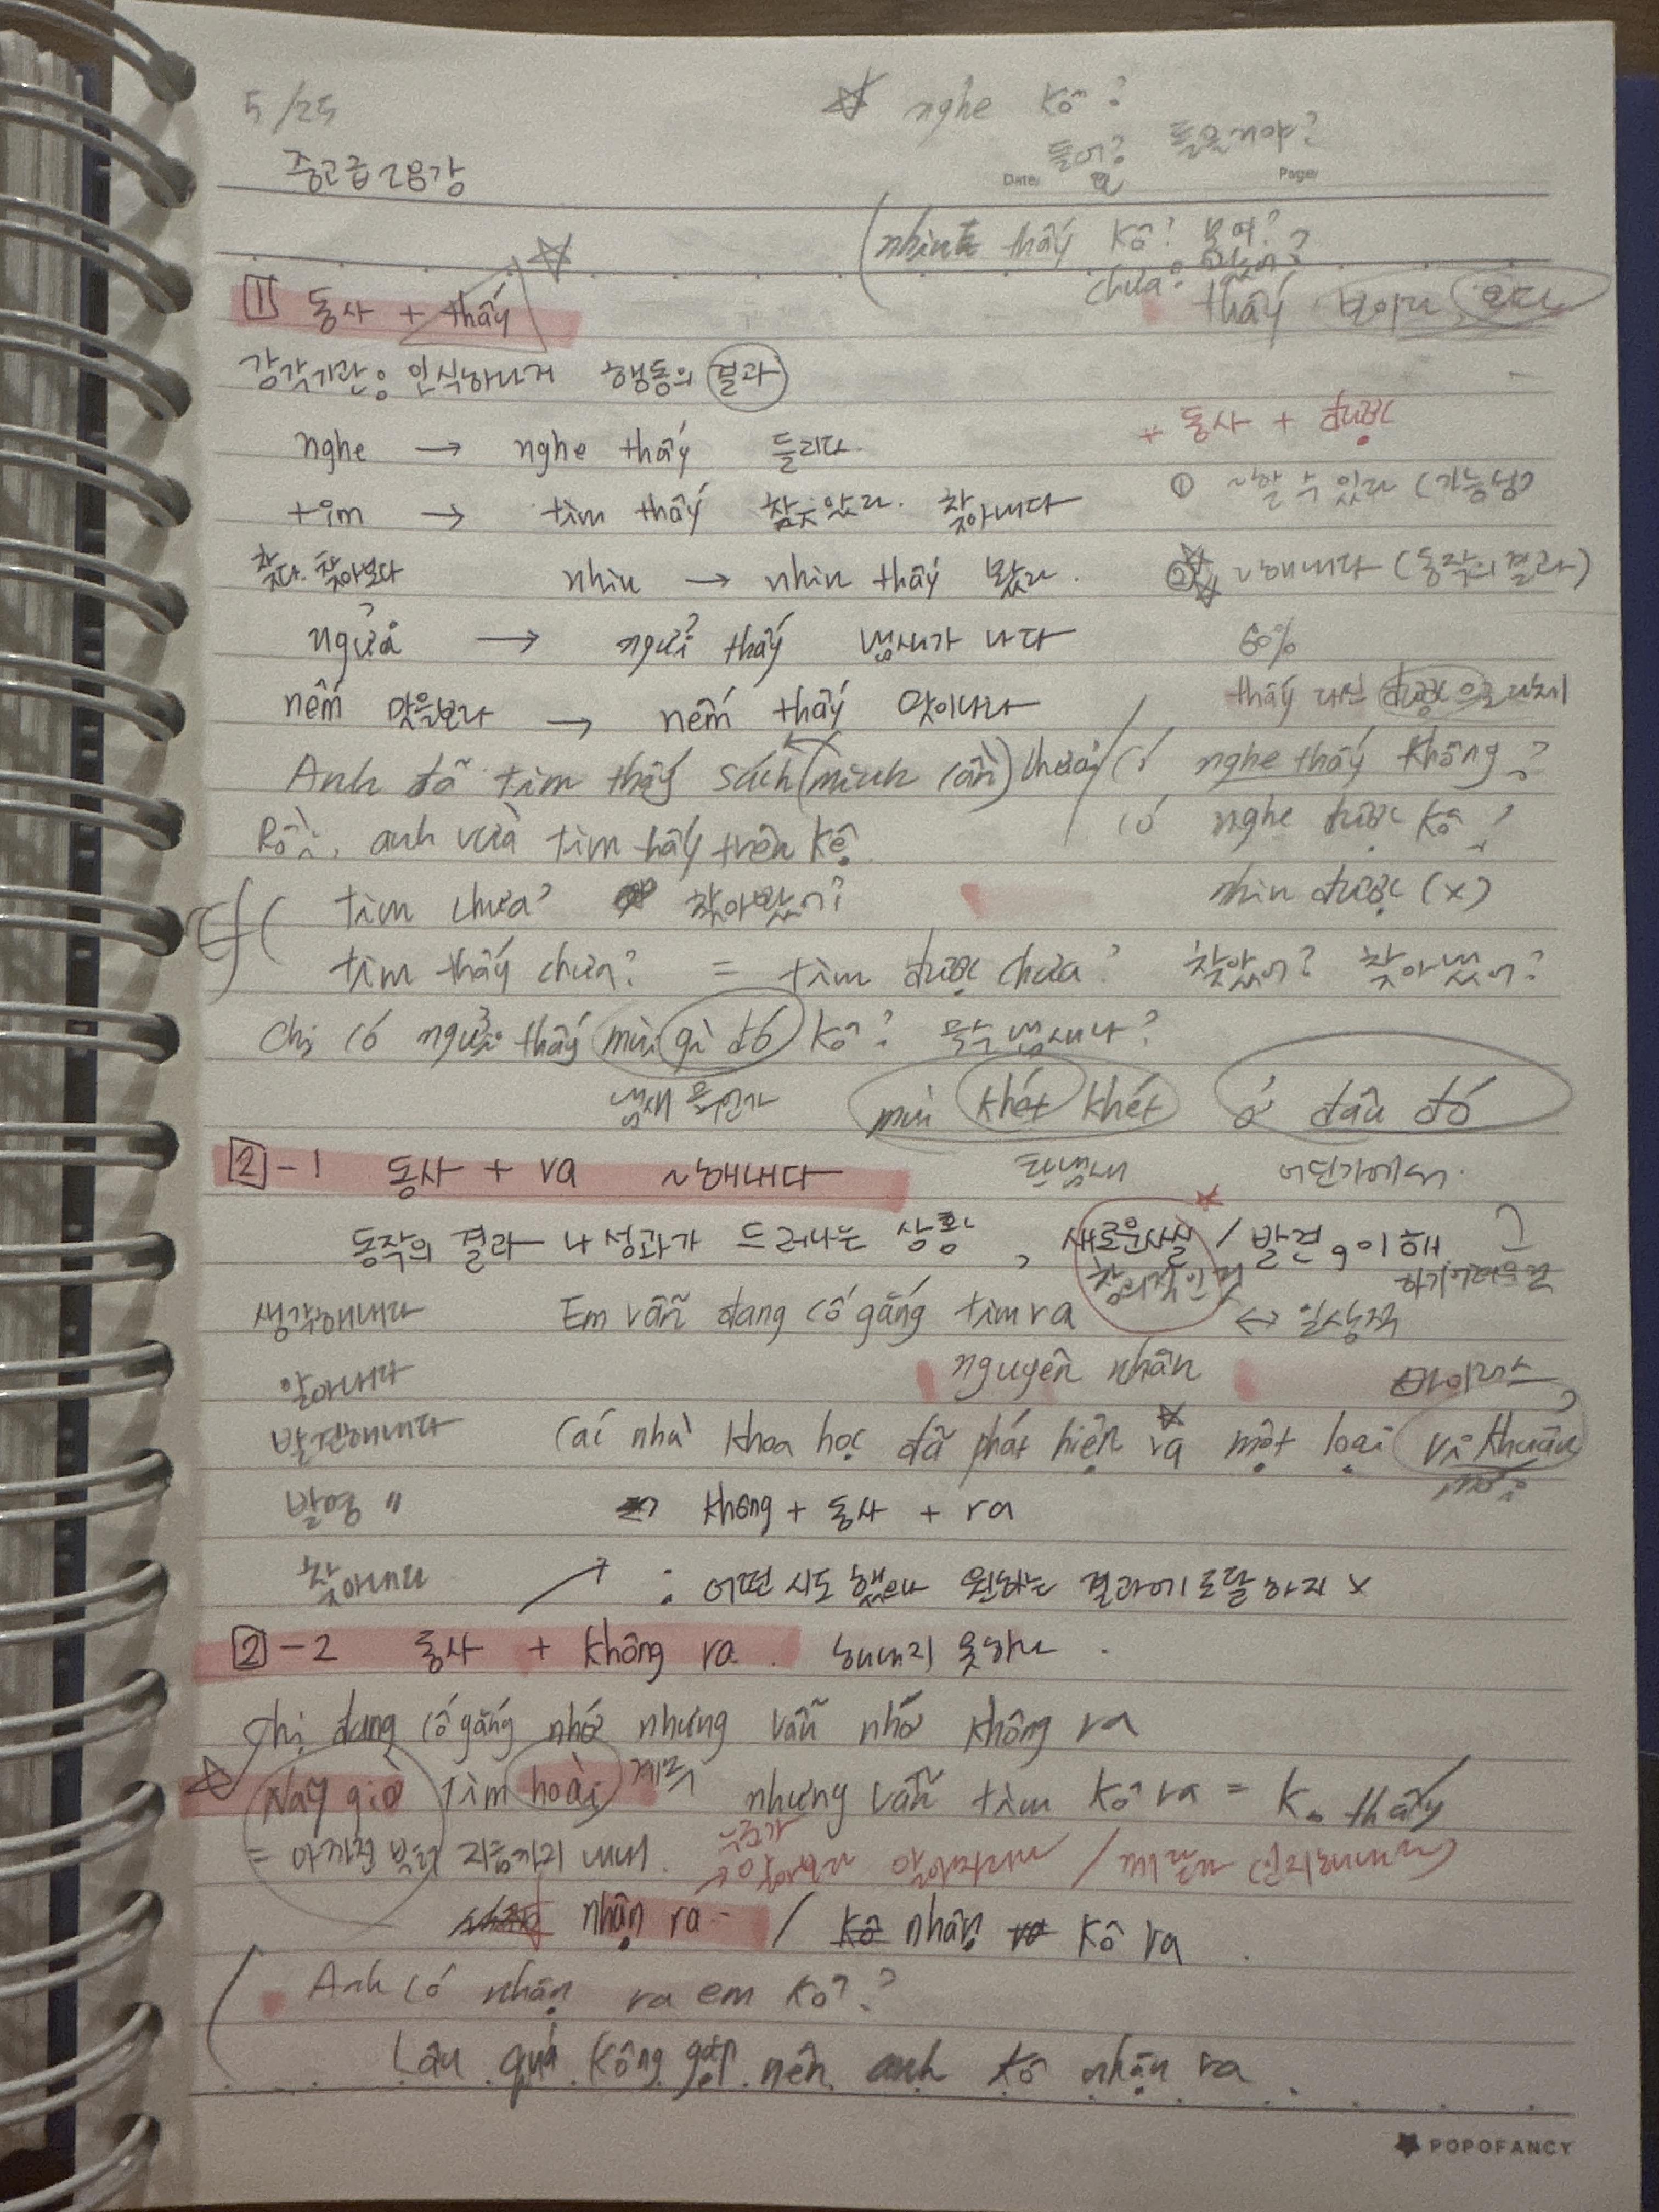 5/25
☆ nghe kô?
들어? 들은거야?
Date: Page:
중고급 28강
(nhìn thấy kô? 보여?
chưa? 봤어?
thấy 보이다
① 동사 + thấy
감각기관으로 인식하나 행동의 결과
+ 동사 + được
nghe → nghe thấy 들리다.
① ~할 수 있다 (가능성)
tìm → tìm thấy 찾았다. 찾아내다
찾다. 찾아보다
nhìn → nhìn thấy 봤다.
② ~해내다 (동작의 결과)
ngửi → ngửi thấy 냄새가 나다
60%
nếm 맛을보다 → nếm thấy 맛이나다
thấy 대신 được으로 대체
Anh đã tìm thấy sách (mình cần) chưa? / Có nghe thấy không?
Rồi, anh vừa tìm thấy trên kệ.
có nghe được kô?
nhìn được (x)
tìm chưa? 찾아봤어?
tìm thấy chưa? = tìm được chưa? 찾았어? 찾아냈어?
Chị có ngửi thấy mùi gì đó kô? 무슨 냄새나?
냄새 무언가
mùi khét khét ở đâu đó
탄냄새 어딘가에서.
②-1 동사 + ra ~해내다
동작의 결과나 성과가 드러나는 상황, 새로운사실 / 발견, 이해
창의적인 것
하기어려운것
↔ 일상적
생각해내다 Em vẫn đang cố gắng tìm ra
nguyên nhân
알아내다
바이러스
발견해내다 Các nhà khoa học đã phát hiện ra một loại vi khuẩn
mới
발명 〃 không + 동사 + ra
찾아내다 : 어떤 시도 했으나 원하는 결과에 도달하지 x
②-2 동사 + không ra. 해내지 못하다.
Chị đang cố gắng nhớ nhưng vẫn nhớ không ra
☆ Nãy giờ tìm hoài 계속 nhưng vẫn tìm kô ra = k thấy
= 아까전부터 지금까지 내내.
누군가
알아차리다 / 깨닫다 (인지해내다)
nhận ra / nhận kô ra.
Anh có nhận ra em kô?
Lâu quá kông gặp nên anh kô nhận ra.
POPOFANCY